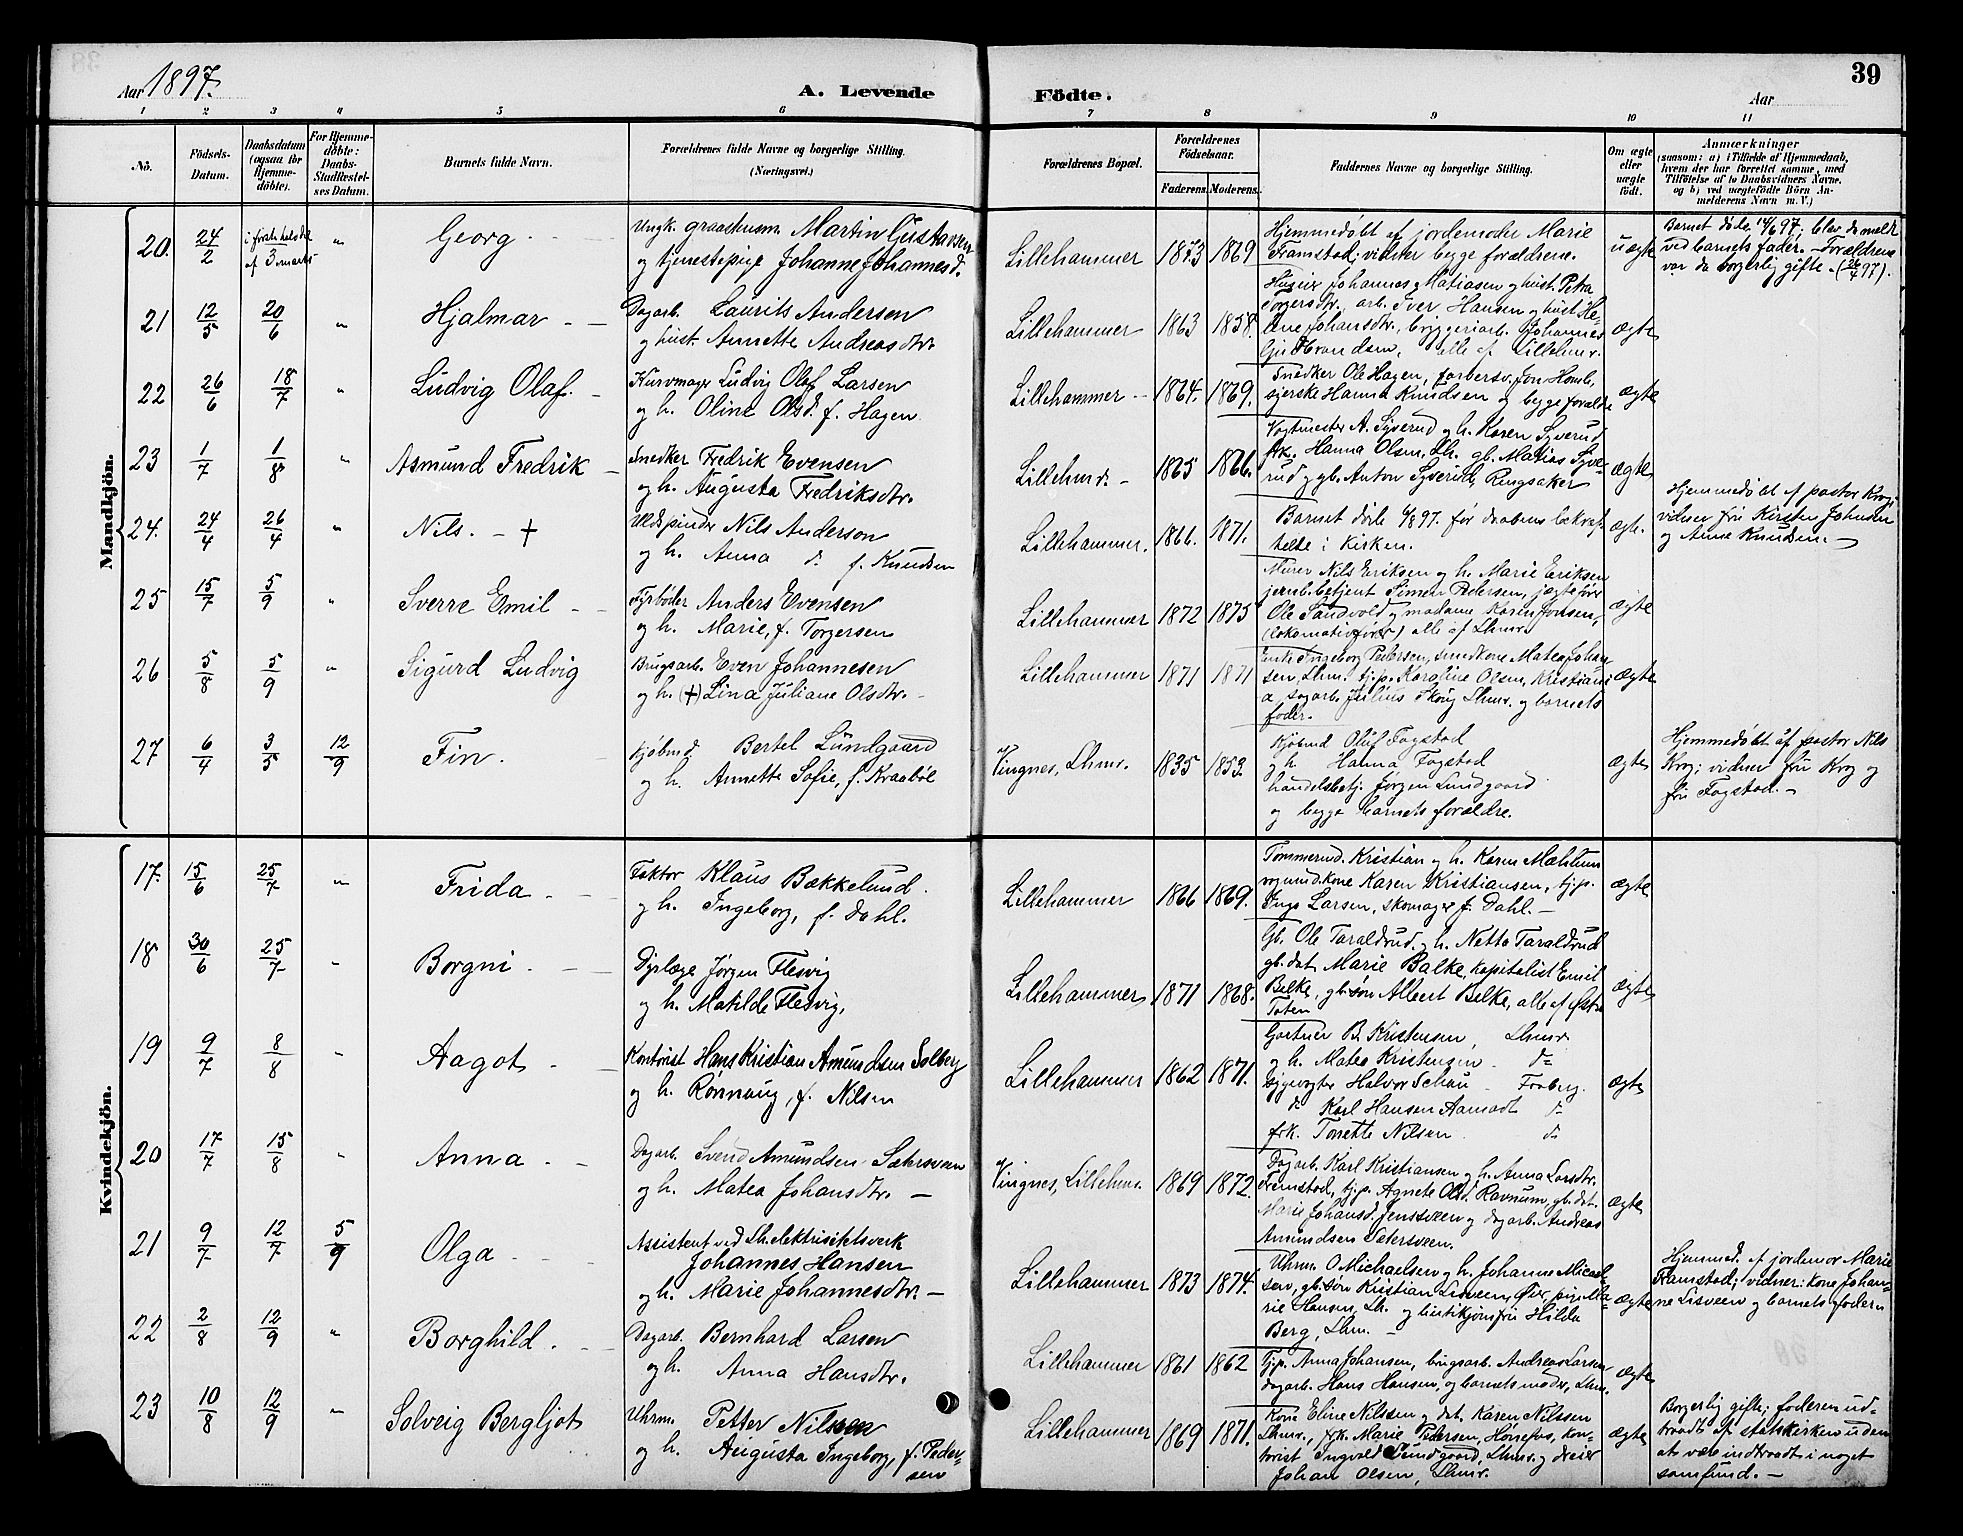 Aar 1897.
A. Levende Födte.
39
Aar
1 2 3 4 5 6 7 8 9 10 11
No.
Födsels-Datum.
Daabsdatum (ogsaa for Hjemmedöbte).
For Hjemmedöbte: Daabs-Stadfæstelses Datum.
Barnets fulde Navn.
Forældrenes fulde Navne og borgerlige Stilling. (Næringsvei.)
Forældrenes Bopæl.
Forældrenes Födselsaar.
Faderens. Moderens.
Faddernes Navne og borgerlig Stilling.
Om ægte eller uægte födt.
Anmærkninger
(saasom: a) i Tilfælde af Hjemmedaab, hvem der har forrettet samme, med Tilföielse af to Daabsvidners Navne, og b) ved uægtefödte Börn Anmelderens Navn m. V.)
Mandkjön.
20. 24/2 af 3 marts " Georg
Ungk. Martin Gustavsen
og tjenestepige Johanne Johannesd.
Lillehammer 1873 1869
Hjemmedøbt af jordemoder Marie
Framstad; vidner begge forældrene.
uægte
Barnet døde 14/6 97; blev da meldt
ved barnets fader. - Forældrene
var da borgerlig gifte. (26/4 97).
21 12/5 20/6 " Hjalmar
Dagarb. Laurits Andersen
og hust. Annette Andreasdtr.
Lillehammer 1863 1858.
Huseier Johannes Matiasen og hust. Petra
Torgersdtr., arb. Iver Hansen og hust. He-
lene Johansdtr., bryggeriarb. Johannes
Gudbrandsen, alle af Lillehmr.
ægte
22 26/6 18/7 " Ludvig Olaf.
Kurvmager Ludvig Olaf Larsen
og h. Oline Olsd. f. Hagen
Lillehammer 1864. 1869.
Snedker Ole Hagen,
syerske Hanna Knudsen og begge forældre
ægte
23 1/7 1/8 " Asmund Fredrik
Snedker Fredrik Evensen
og h. Augusta Fredriksdtr.
Lillehmr. 1865 1866.
Vogtmester A. Syverud og h. Karen Syverud
frk. Hanna Olsen, Lh. gb. Matias Syve-
rud og gb. Anton Syverud, Ringsaker
ægte
24. 24/4 26/4 " Nils. - +
Uldspinder Nils Anderson
og h. Anna d. f. Knudsen
Lillehammer. 1866. 1871.
Barnet døde 6/8 97. før daabens bekræf-
telse i kirken.
ægte.
Hjemmedøbt af pastor Krog;
vidner fru Kirsten Johnsen
og Anne Knudsen.
25 15/7 5/9 " Sverre Emil
Fyrbøder Anders Evensen
og h. Marie, f. Torgersen
Lillehammer 1872 1875
Murer Nils Eriksen og h. Marie Eriksen
jernb.betjent Simen Pedersen, jægtefører
Ole Sandvold og madame Karen Jonsen,
(lokomotivfører) alle af Lhmr.
ægte
26 5/8 5/9 " Sigurd Ludvig
Brugsarb. Even Johannesen
og h. (+) Lina Juliane Olsdtr.
Lillehammer 1871 1871
Enke Ingeborg Pedersen, smedkone Matea Johan-
sen, Lhm. tj.p. Karoline Olsen, Kristiani-
a dagarb. Julius Skoug Lhmr. og barnets
fader.
ægte
27 6/4 3/5 12/9 Fin.
Kjøbmd. Bertel Lundgaard
og h. Annette Sofie, f. Kraabøl
Vingnes, Lhmr. 1835 1853
Kjøbmd Oluf Fogstad
og h. Hanna Fogstad
handelsbetj. Jørgen Lundgaard
og begge barnets forældre.
ægte
Hjemmedøbt af pastor Nils
Krog; vidner fru Krog og
fru Fogstad.
Kvindekjön.
17. 15/6 25/7 " Frida
Faktor Klaus Bækkelund.
og h. Ingeborg, f. Dahl.
Lillehammer 1866 1869.
Tømmermd. Kristian og h. Karen Mæhlum
vognmd.kone Karen Kristiansen, tj.p.
Inga Larsen, skomager J. Dahl.
ægte
18 30/6 25/7 " Borgni
Dyrlæge Jørgen Flesvig
og h. Matilde Flesvig,
Lillehammer 1871 1868.
Gb. Ole Taraldrud og h. Netta Taraldrud
gb.dat Marie Balke, kapitalist Emil
Balke, gb.søn Albert Balke, alle af Østre
Toten
ægte
19 9/7 8/8 " Aagot
Kontorist Hans Kristian Amundsen Solberg
og h. Rønnaug, f. Nilsen
Lillehammer 1862 1871.
Gartner B. Kristensen, Lhmr
og h. Matea Kristensen d=
Halvor Schau Faaberg.
d. Karl Hansen Aamodt d=
frk. Torette Nilsen d=
ægte
20 17/7 15/8 " Anna
Dagarb. Svend Amundsen Sætersveen
og h. Matea Johansdtr.
Vingnes, Lillehmr. 1869 1872.
Dagarb. Karl Kristiansen og h. Anna Larsdtr.
Fremstad, tj.p. Agnete Olsd. Ravnum, gb.dat.
Marie Johansd. Jenssveen og dagarb. Andreas
Amundsen Sætersveen.
ægte
21 9/7 12/7 5/9 Olga
Assistent ved Lh. elektrisitetsverk
Johannes Hansen
og h. Marie Johannesdtr.
Lillehammer 1873 1874.
Uhrm. O Michaelsen og h. Johanne Micael-
sen, gb.søn Kristian Lisveen, Øier, pige Ma-
rie Hansen, Lh. og butikjomfru Hilda
Berg, Lhm.
ægte
Hjemmed. af jordemor Marie
Ramstad; vidner: kone Johan-
ne Lisveen og barnets faderen
22 2/8 12/9 " Borghild.
Dagarb. Bernhard Larsen
og h. Anna Hansdtr.
Lillehammer 1861 1862
Tj.p. Anna Johansen, brugsarb. Andreas Larsen
dagarb. Hans Hansen, og barnets moder, Lhm.
ægte
23 10/8 12/9 " Solveig Bergljot
Uhrm. Petter Nilssen
og h. Augusta Ingeborg, f. Peder-
sen
Lillehammer 1869 1871.
Kone Eline Nilssen og dat. Karen Nilssen
Lhmr., frk. Marie Pedersen, Hønefos, kon-
torist Ingvald Lundgaard, Lhmr. og dreier
Johan Olsen, Lhmr.
ægte
Borgerlig gifte; faderen ud-
traadt af statskirken uden
at være indtraadt i noget
samfund.